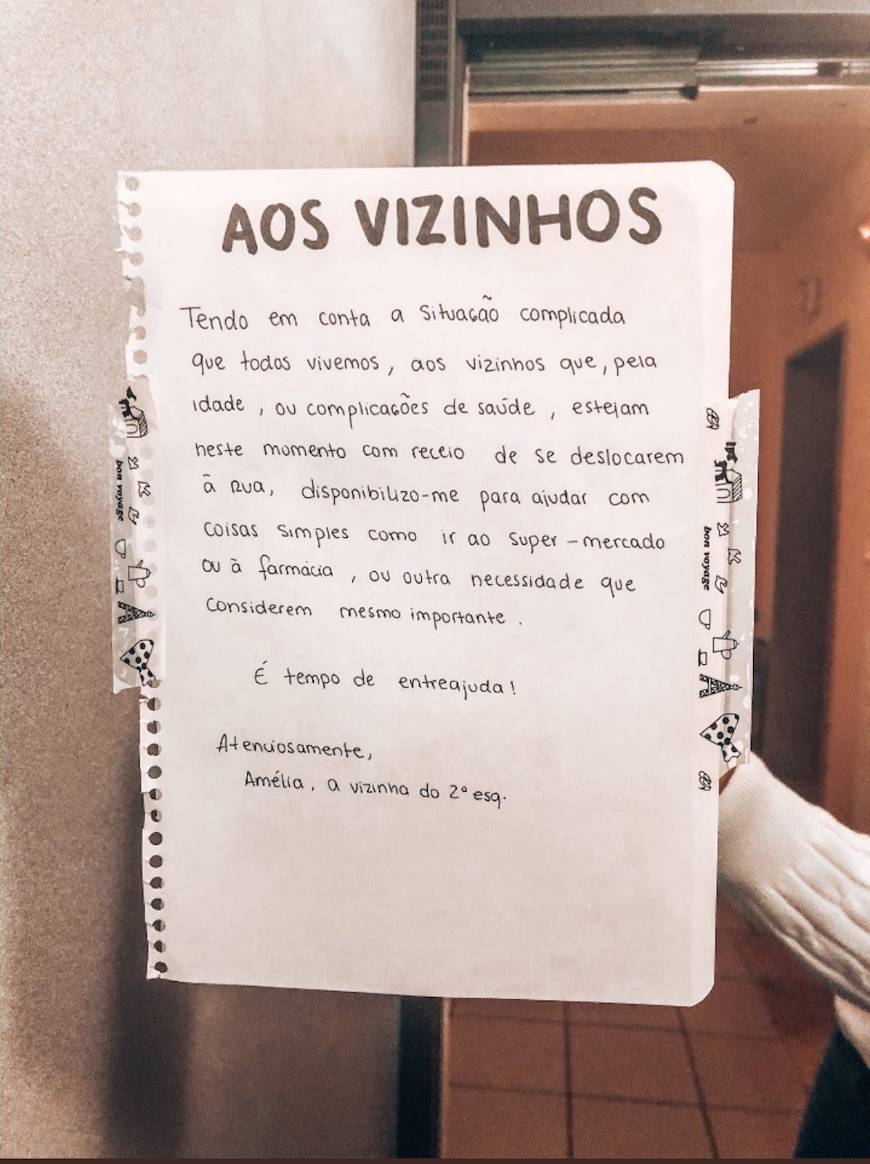 AOS VIZINHOS
Tendo em conta a situação complicada
que todos vivemos, aos vizinhos que, pela
idade, ou complicações de saúde, estejam
neste momento com receio de se deslocarem
à rua, disponibilizo-me para ajudar com
coisas simples como ir ao super-mercado
ou à farmácia, ou outra necessidade que
considerem mesmo importante.
É tempo de entreajuda!
Atenciosamente,
Amélia, a vizinha do 2º esq.
bon voyage
bon voyage